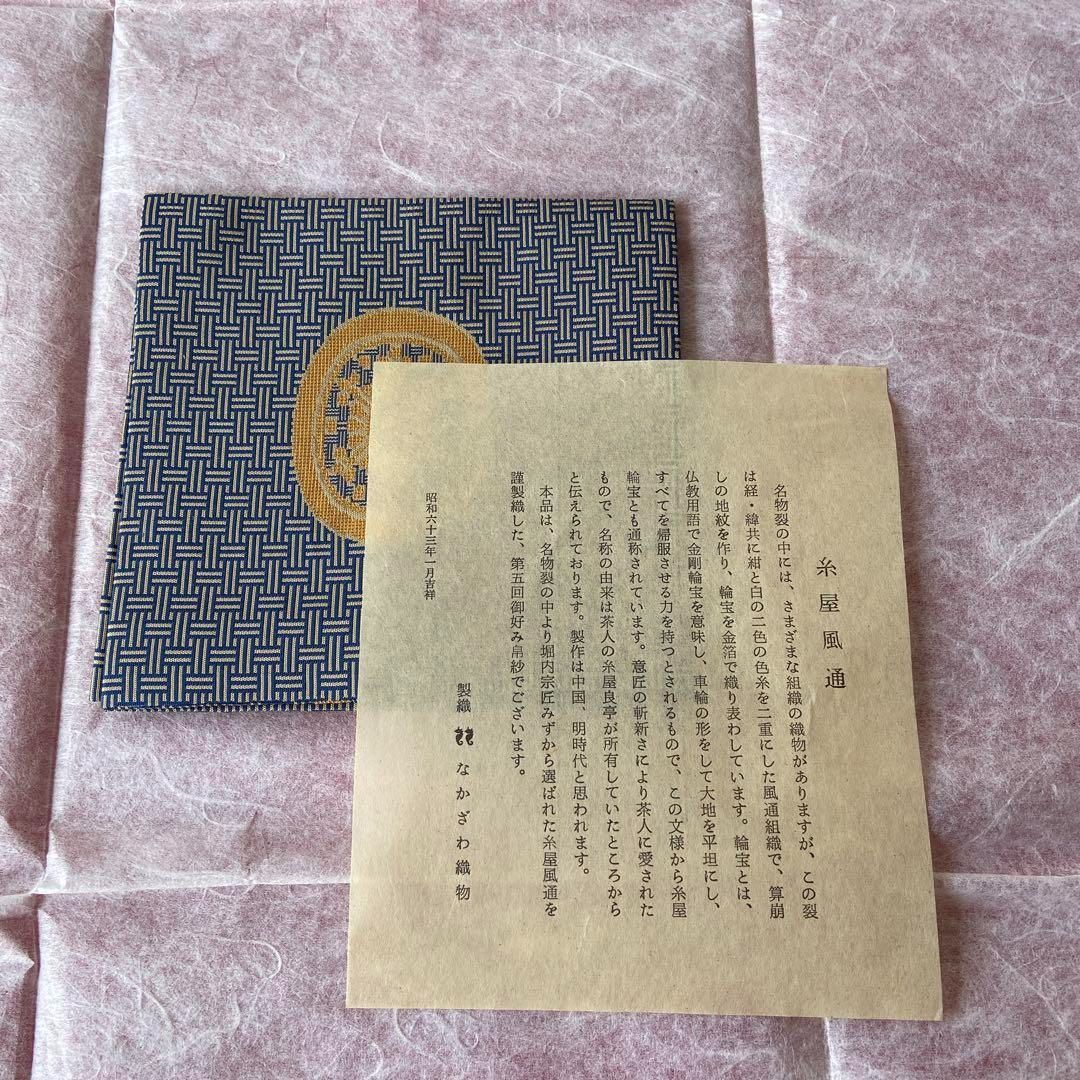 糸屋風通
名物裂の中には、さまざまな組織の織物がありますが、この裂
は経・緯共に紺と白の二色の色糸を二重にした風通組織で、算崩
しの地紋を作り、輪宝を金箔で織り表わしています。輪宝とは、
仏教用語で金剛輪宝を意味し、車輪の形をして大地を平坦にし、
すべてを帰服させる力を持つとされるもので、この文様から糸屋
輪宝とも通称されています。意匠の斬新さにより茶人に愛された
もので、名称の由来は茶人の糸屋良亭が所有していたところから
と伝えられております。製作は中国、明時代と思われます。
本品は、名物裂の中より堀内宗匠みずから選ばれた糸屋風通を
謹製織した、第五回御好み帛紗でございます。
昭和六十三年一月吉祥
製織 なかざわ織物